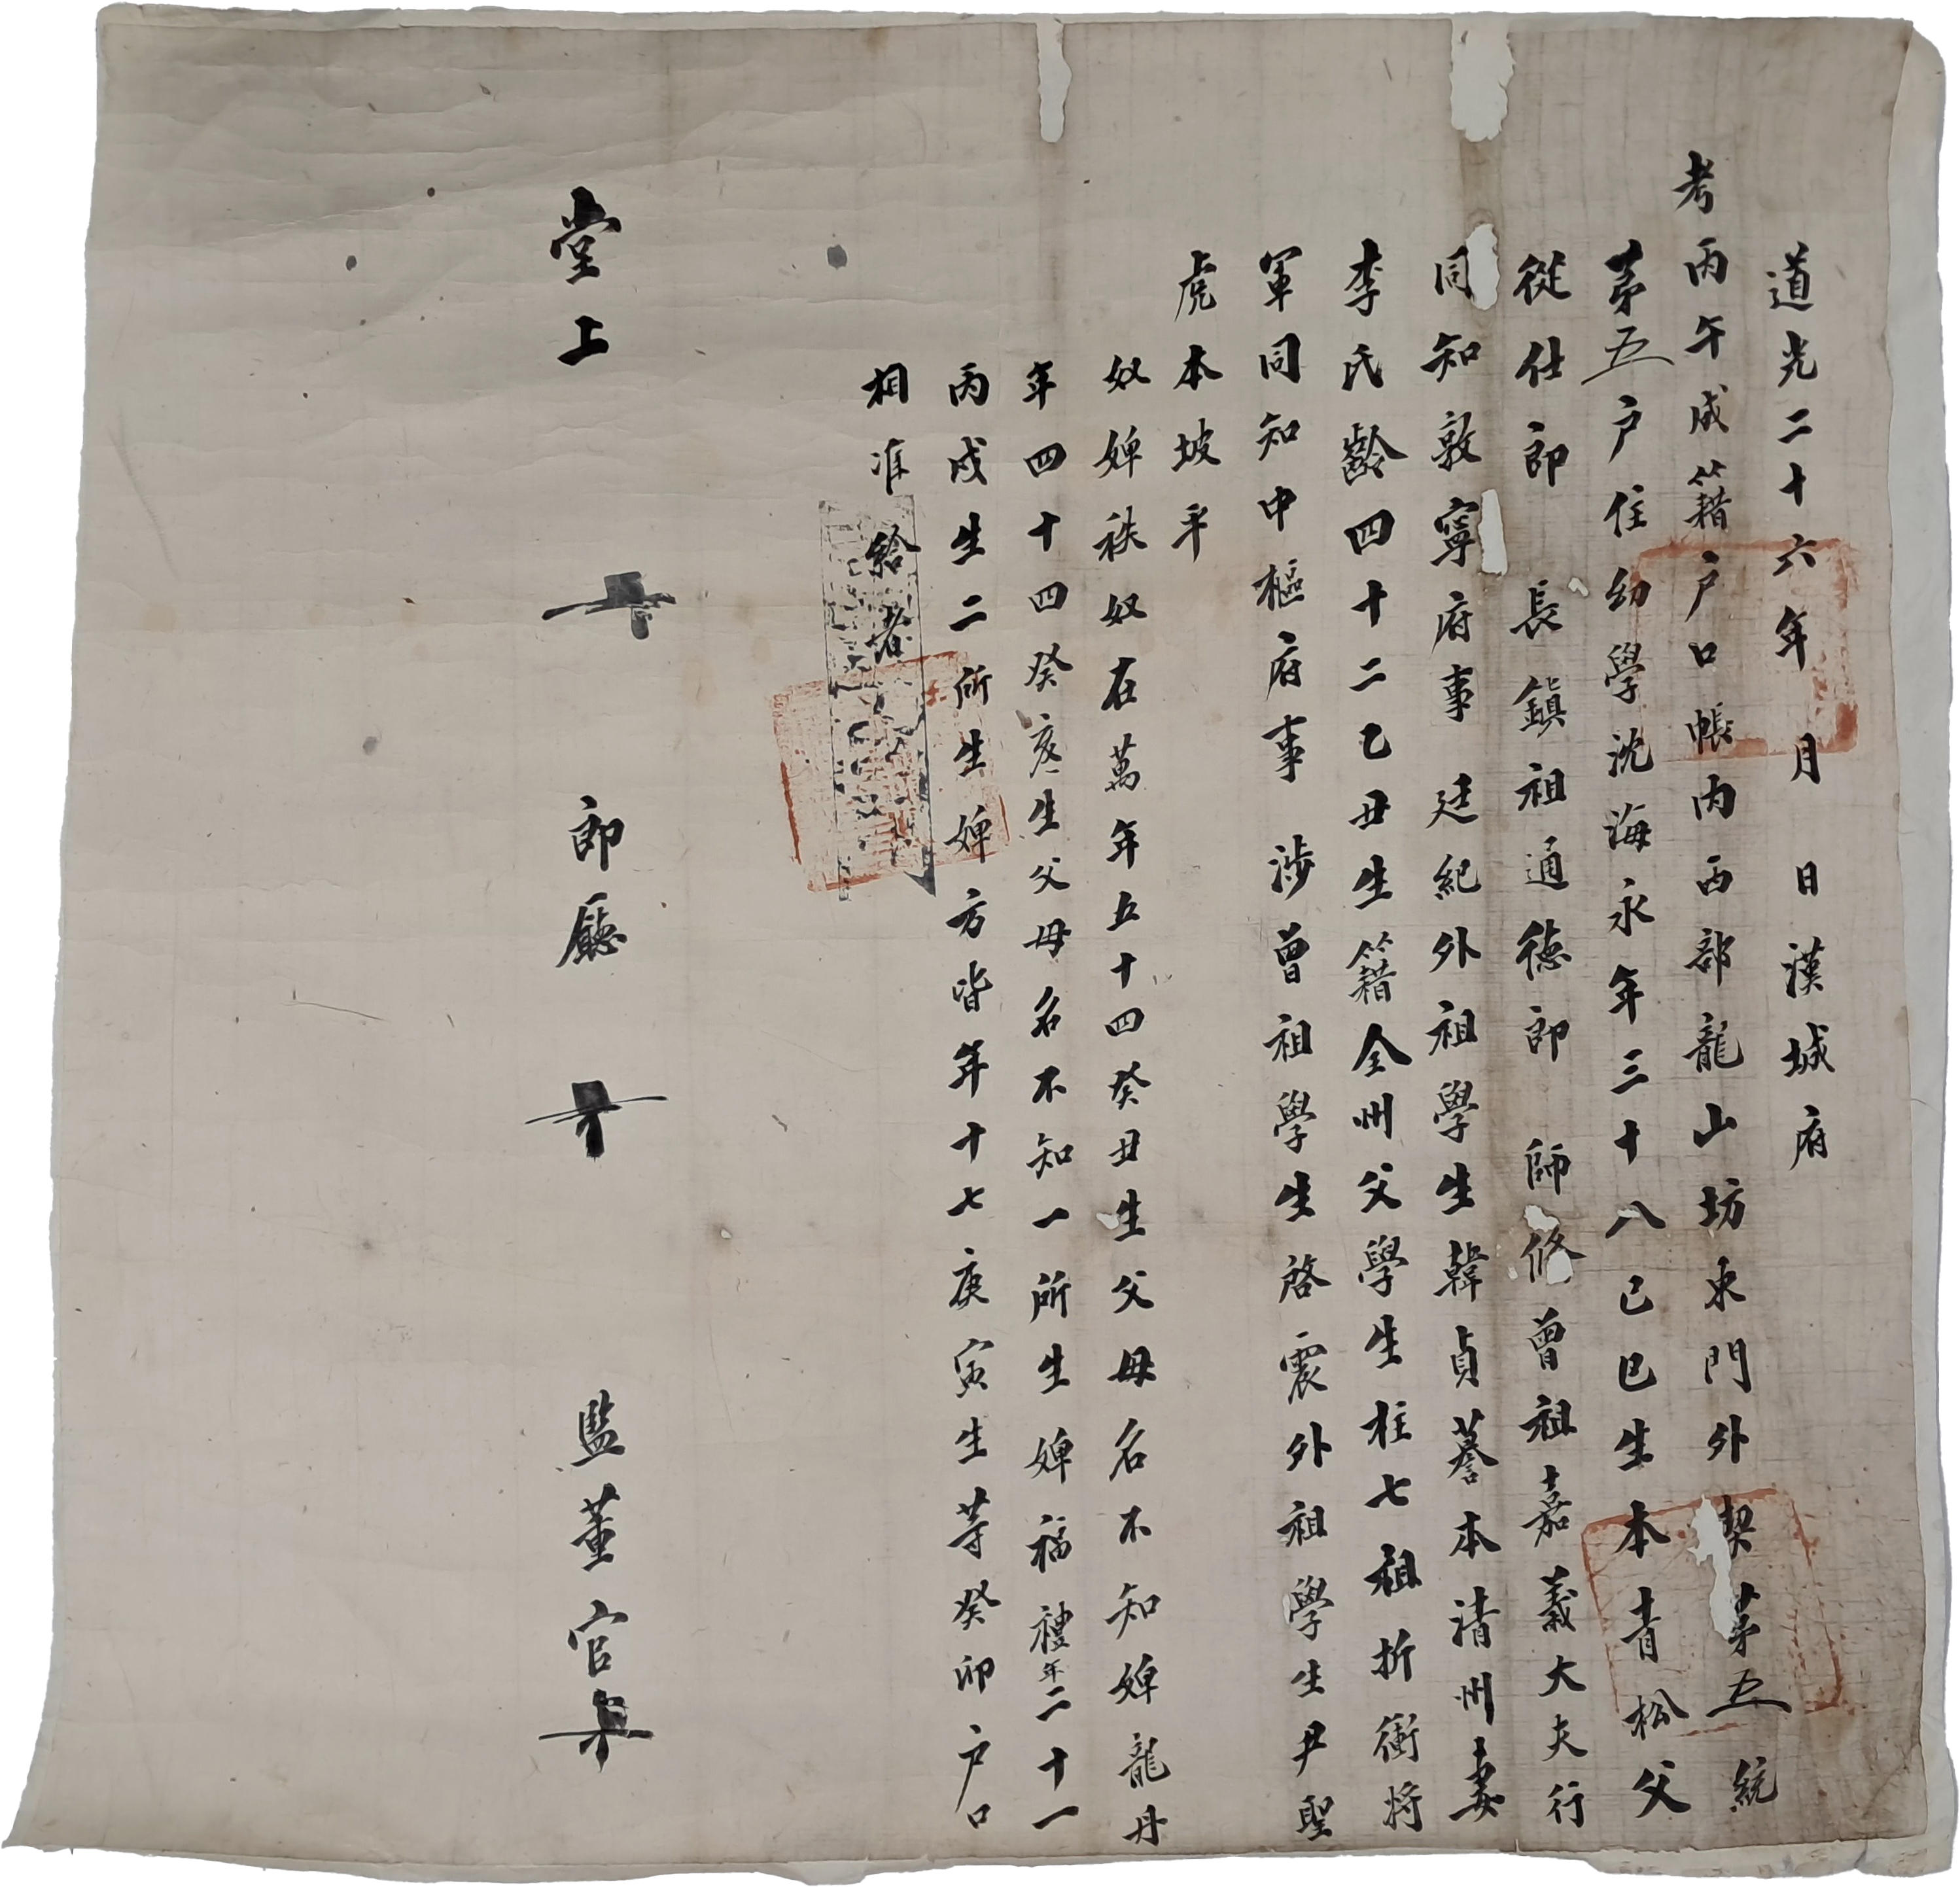 道光二十六年 月 日漢城府
考丙午成籍戶口帳內西部龍山坊東門外契第五統
第五戶住幼學沈海永年三十八己巳生本青松父
從仕郎 長鎭祖通德郎 師修曾祖嘉義大夫行
同知敦寧府事 廷紀外祖學生韓貞謩本淸州妻
李氏齡四十二乙丑生籍全州父學生柱七祖折衝將
軍同知中樞府事 涉曾祖學生啓震外祖學生尹聖
虎本坡平
奴婢秩奴在萬年五十四癸丑生父母名不知婢龍丹
年四十四癸亥生父母名不知一所生婢福禮年二十一
丙戌生二所生婢方皆年十七庚寅生等癸卯戶口
相准給者
堂上 郎廳 監董官